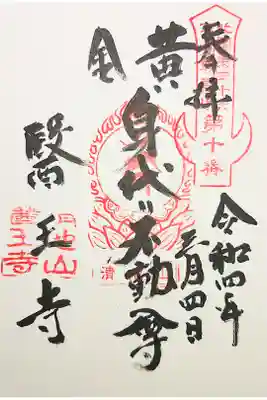 奉拝
令和四年
月四日
黄身代り不動尊
醫王寺
第十番
醫王寺